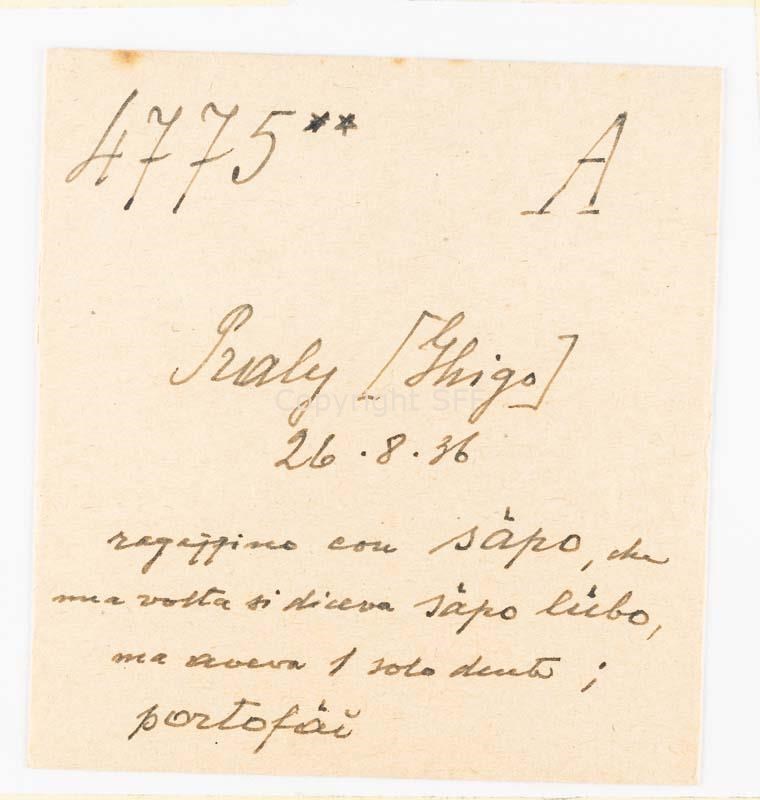 4775** A
Praly [Ghigo]
Copyright SFF
26.8.36
ragazzino con sàpo, che
una volta si diceva sàpo lübo,
ma aveva 1 solo dente ;
portofàĭ